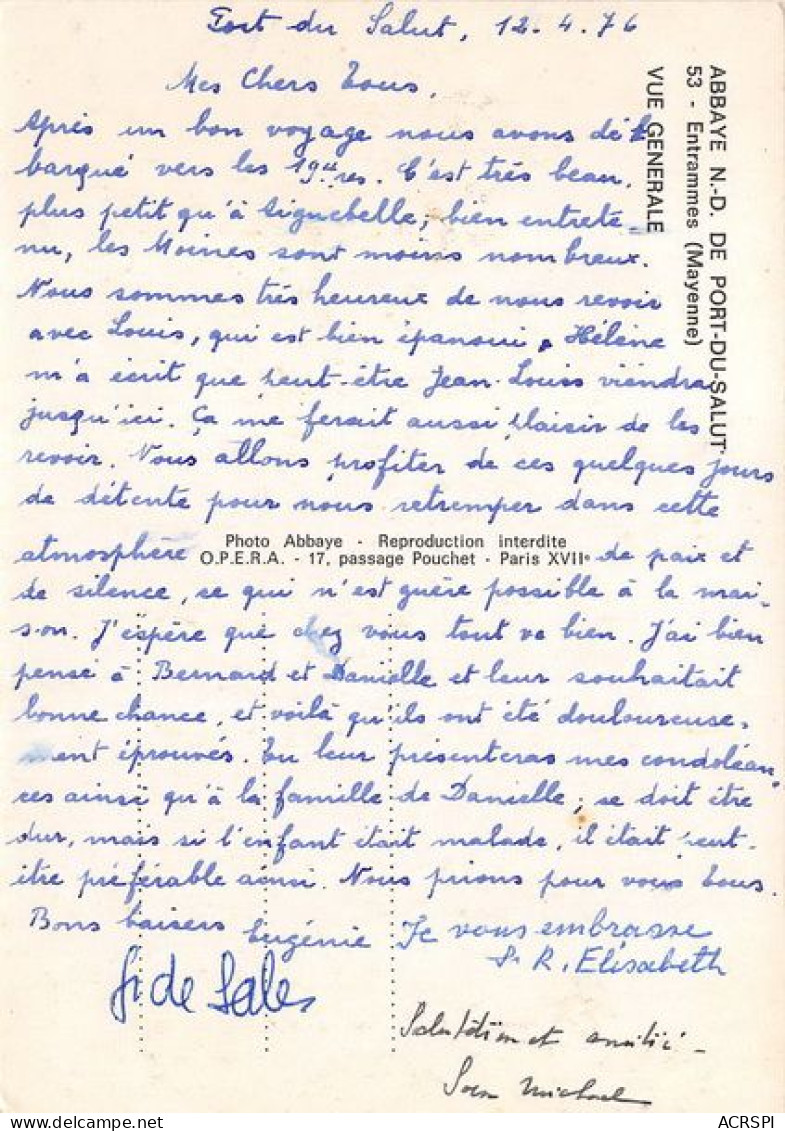 Port du Salut, 12.4.76
Mes Chers Tous,
Après un bon voyage nous avons dé
barqué vers les 19 res. C'est très beau,
plus petit qu'à Aiguebelle, bien entrete-
nu, les Moines sont moins nombreux.
Nous sommes très heureux de nous revoir
avec Louis, qui est bien épanoui, Hélène
m'a écrit que peut-être Jean-Louis viendra
jusqu'ici. Ça me ferait aussi plaisir de les
revoir. Nous allons profiter de ces quelques jours
de détente pour nous retremper dans cette
atmosphère de paix et
de silence, ce qui n'est guère possible à la mai-
son. J'espère que chez vous tout va bien. J'ai bien
pensé à Bernard et Danielle et leur souhaitait
bonne chance, et voilà qu'ils ont été douloureuse-
ment éprouvés. Tu leur présenteras mes condoléan-
ces ainsi qu'à la famille de Danielle; ce doit être
dur, mais si l'enfant était malade, il était peut-
être préférable ainsi. Nous prions pour vous Tous.
Bons baisers Eugénie
Je vous embrasse
S. R. Elisabeth
fr de Sales
Salutation et amitié -
Soeur Michael
ABBAYE N.-D. DE PORT-DU-SALUT
53 - Entrammes (Mayenne)
VUE GENERALE
Photo Abbaye - Reproduction interdite
O.P.E.R.A. - 17, passage Pouchet - Paris XVIIe
ACRSPI